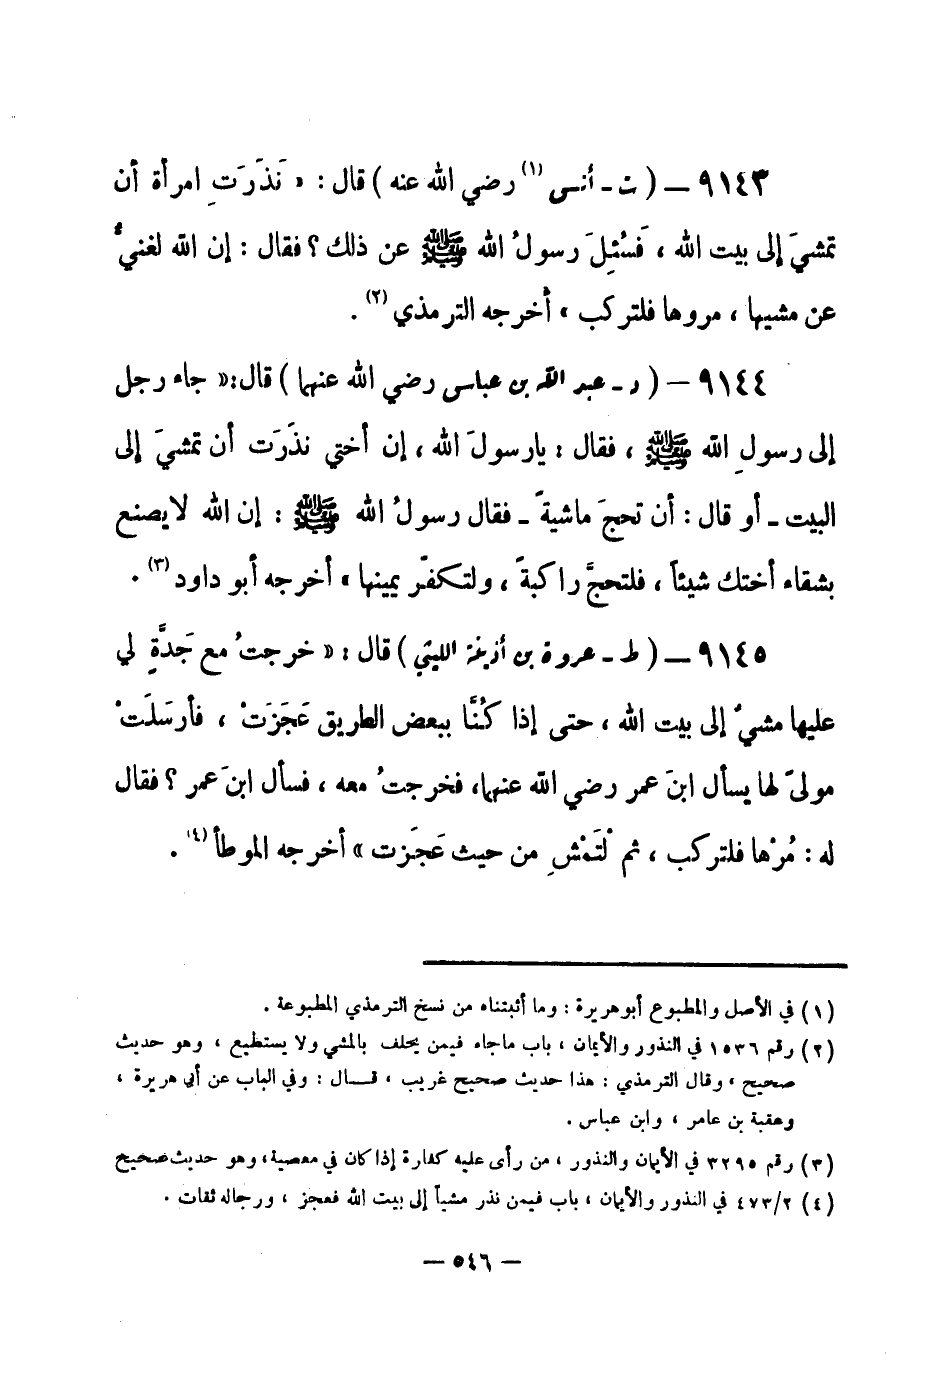 ٩١٤٣ – ( ت - أنس (١) رضي الله عنه ) قال : « نَذَرَتِ امرأة أن
تمشيَ إلى بيت الله ، فَسُئِلَ رسولُ الله ﷺ عن ذلك ؟ فقال : إن الله لغنيٌّ
عن مشيها ، مروها فلتركب » أخرجه الترمذي (٢) .
٩١٤٤ – ( د - عبد الله بن عباس رضي الله عنهما ) قال : « جاء رجل
إلى رسولِ الله ﷺ ، فقال : يارسولَ الله ، إن أختي نذَرَت أن تمشيَ إلى
البيت - أو قال : أن تحجَ ماشيةً - فقال رسولُ الله ﷺ : إن الله لا يصنع
بشقاء أختك شيئاً ، فلتحجَّ راكبةً ، ولتكفّر يمينها » أخرجه أبو داود (٣) .
٩١٤٥ – ( ط - عروة بن أذينة الليثي ) قال : « خرجتُ مع جَدَّةٍ لي
عليها مشيٌ إلى بيت الله ، حتى إذا كُنَّا ببعض الطريق عَجَزَتْ ، فأرسَلَتْ
مولىً لها يسأل ابنَ عمر رضي الله عنهما، فخرجتُ معه ، فسأل ابنَ عمر ؟ فقال
له : مُرْها فلتركب ، ثم لْتَمْشِ من حيث عَجَزت » أخرجه الموطأ (٤) .
(١) في الأصل والمطبوع أبو هريرة : وما أثبتناه من نسخ الترمذي المطبوعة .
(٢) رقم ١٥٣٦ في النذور والأيمان ، باب ماجاء فيمن يحلف بالمشي ولا يستطيع ، وهو حديث
صحيح ، وقال الترمذي : هذا حديث صحيح غريب ، قــال : وفي الباب عن أبي هريرة ،
وعقبة بن عامر ، وابن عباس .
(٣) رقم ٣٢٩٥ في الأيمان والنذور ، من رأى عليه كفارة إذا كان في معصية، وهو حديث صحيح
(٤) ٤٧٣/٢ في النذور والأيمان ، باب فيمن نذر مشياً إلى بيت الله فعجز ، ورجاله ثقات .
– ٥٤٦ –